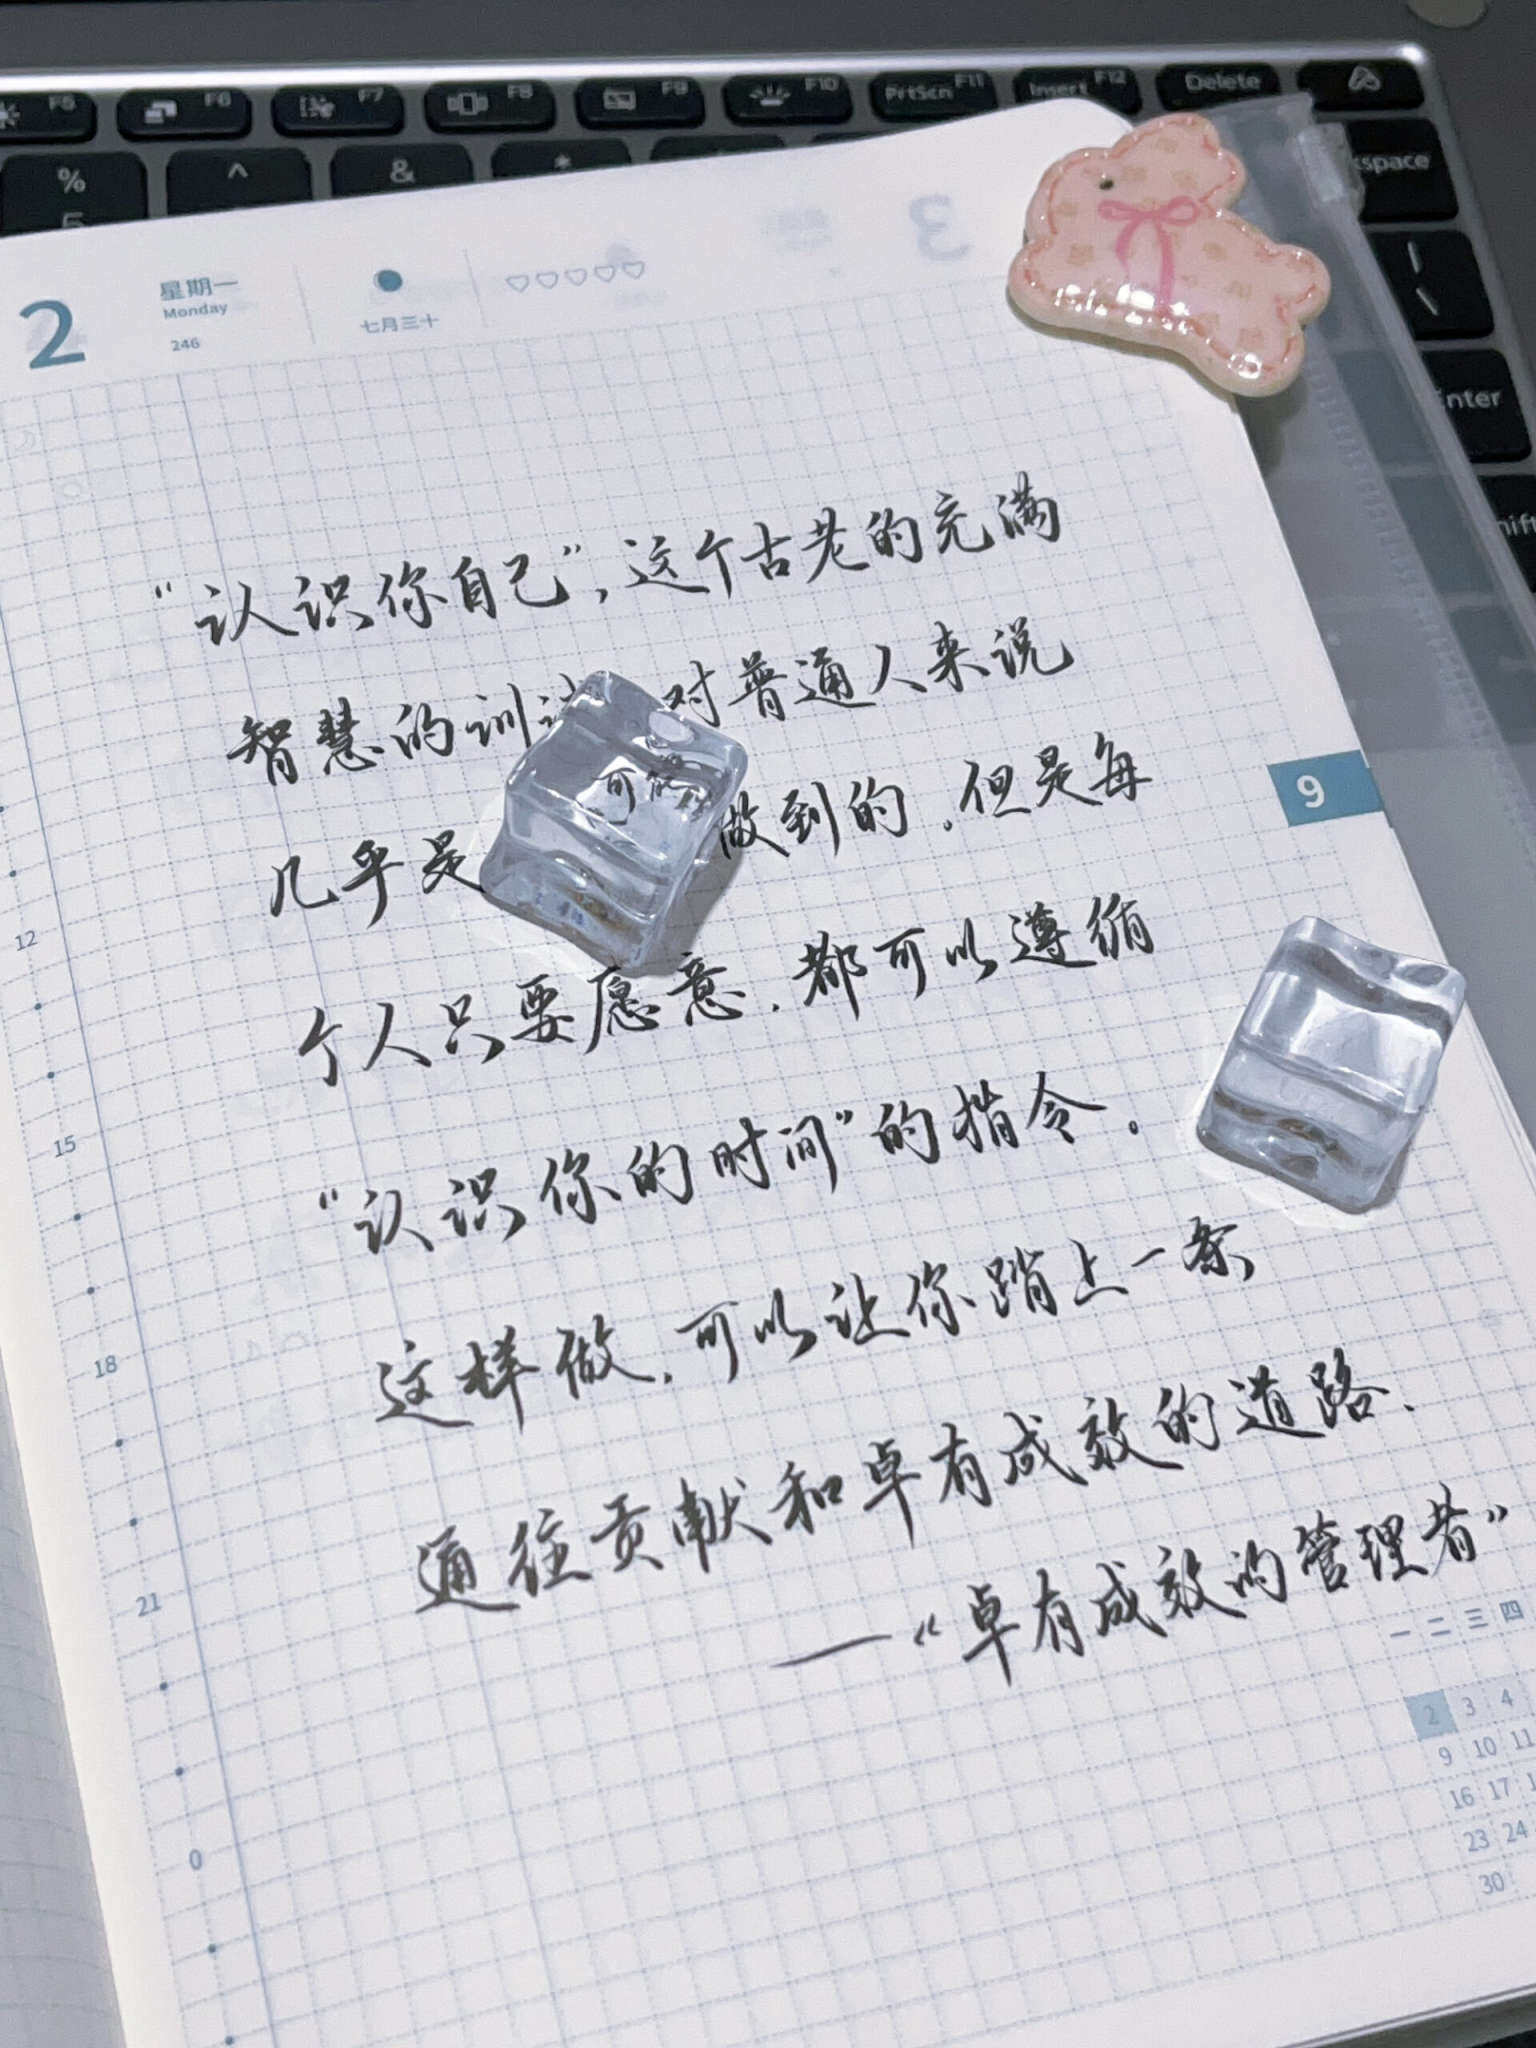 F5 F6 F7 F8 F9 F10 PrtScn F11 Insert F12 Delete
% ^ & *
enter
2
星期一
Monday
246
七月三十
3
“认识你自己”，这个古老的充满
智慧的训 对普通人来说
几乎是 可能做到的，但是每
个人只要愿意，都可以遵循
“认识你的时间”的指令。
这样做，可以让你踏上一条
通往贡献和卓有成效的道路.
—“卓有成效的管理者”
9
12
15
18
21
0
一 二 三 四
2 3 4
9 10 11
16 17
23 24
30